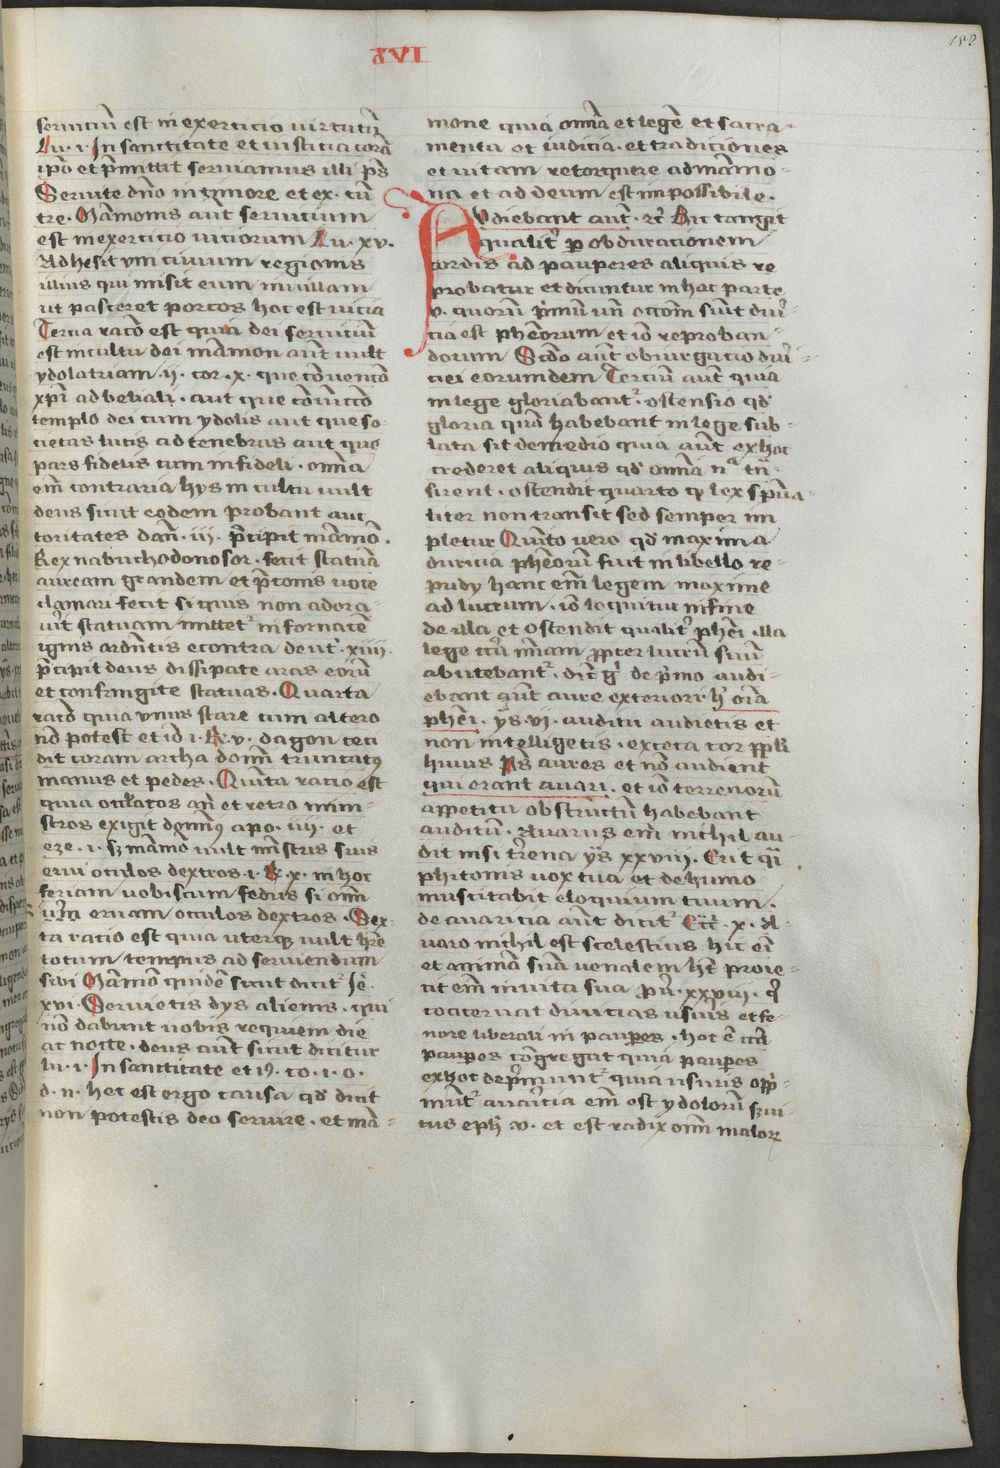 XVI
152
seruiciū est in exercicio uirtutū
Lu. i. In sanctitate et iusticia corā
ip̄o et p̄mittit seruiamus illi p̄s
Seruite dn̄o in timore et ex. cū
tre. Māmonis aut seruicium
est in exercicio uiciorum Lu. xv.
Adhesit vni ciuium regionis
illius qui misit eum in uillam
ut pasceret porcos hoc est uicia
Tercia racō est quia dei seruiciū
est in cultu dei māmon aūt uult
ydolatriam .ii. cor. x. que cōuencō
xp̄i ad belial. aut que cōuiccō
templo dei cum ydolis aut que so-
cietas lucis ad tenebras aut que
pars fidelis cum infideli. omīa
em̄ contraria hys in cultu uult
deus sicut eodem probant auc
toritates dan̄. iii. p̄cipit māmō.
Rex nabuchodonosor. fecit statuā
auream grandem et p̄conis uoce
clamari fecit si quis non adora-
uit̄ statuam mittet᷒ in fornacē
ignis ardn̄tis econtra deut̓. xiiii.
p̄cipit deus dissipate aras eorū
et confringite statuas. Quarta
racō quia vnus stare cum altero
nō potest et id i. R. v. dagon ceci
dit coram archa domī truncatꝯ
manus et pedes. Quīta ratio est
quia oculatos an̄ et retro mini-
stros exigit domīꝯ apo. iiii. et
eze. i. sꝫ māmō uult mīstris suis
erui oculos dextros. i. R. x. in hoc
feriam uobiscum fedus si omī
um̄ eruam oculos dextros. Sex-
ta ratio est quia uterqꝫ uult hr̄e
totum tempus ad seruiendum
sibi Māmō quidē sicut dicit᷒ Je̓.
xvi. Seruietis dys alienis. qui
nō dabunt uobis requiem die
ac nocte. deus aūt sicut dicitur
lu. i. In sanctitate et iꝯ. co. i. o.
d. n. hec est ergo causa qd̄ dicit
non potestis deo seruire. et mā-
mone quia omīa et legē et sacra-
menta et iudicia. et tradiciones
et uitam retorquere ad māmo-
na et ad deum est impossibile.
Audiebant aut̄. ⁊c̄ Hic tangit
qualit̓ ꝑ obduracionem
cordis ad pauperes aliquis re
probatur et dicuntur in hac parte
v. quorū p̓mūm un̄ occōm sūt diui-
cia est phēorum et iō reproban-
dorum Scd̄o aut̄ obiurgacio diui-
ciei eorumdem Tercium aut̄ quia
in lege gloriabant᷒. ostensio qd̄
gloria quā habebant in lege sub-
lata sit de medio quia aūt ex hoc
crederet aliquis qd̄ omīa nᵃ tn̄-
sirent. ostendit quarto ꝙ lex sp̄ua-
liter non transit sed semper im
pletur Quīto uero qd̄ maxima
duricia phēorū fuit in libello re-
pudy hanc em̄ legem maxime
ad lucrum. iō loquitur in fine
de illa et ostendit qualit̓ phēi illa
lege ītra īniam ꝓpter lucrū suū
abutebant᷒. dic̄ g̓ de p̓mo audi-
ebant aūt aure exteriori h̓ oīa
phēi. ys. vi. auditu audietis et
non intelligetis. exceca cor pp̄li
huius p̄s aures et nō audient
qui erant auari. et iō terrenorū
appetitu obstructū habebant
auditū. Auarus em̄ nichil au-
dit nisi tr̄ena ys̄ xxviii. Erit q̄i
phitonis uox tua et de humo
muscitabit eloquium tuum.
de auaricia aūt dicit᷒ Ecc̄. x. A-
uaro nichil est scelestius hic ei
et animā suā uenalem ht̄ proie-
cit em̄ in uita sua Pu̓. xxviii. q̓
coaceruat diuicias usuris et fe-
nore liberali in pauꝑes. hoc ē ītra
pauꝑes cōgregat quia pauꝑes
ex hoc dep̓munt᷒ quia usuris opp̓-
mūt᷒ auaricia em̄ est ydolorū s̓ui-
tus eph̓ v. et est radix omī malorꝝ